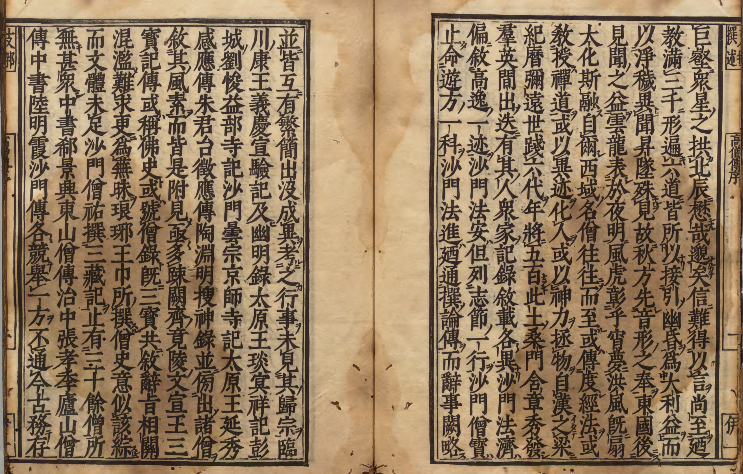 巨壑衆星之拱北辰悠哉邈矣信難得以言尚至迺
教滿三千形遍六道皆所以接引幽昏爲大利益而
以淨穢異聞昇墜殊見故秋方先音形之奉東國後
見聞之益雲龍表於夜明風虎彰乎宵夢洪風既扇
大化斯融自爾西域名僧往往而至或傳度經法或
教授禪道或以異迹化人或以神力拯物自漢之梁
紀曆彌遠世踐六代年將五百此土桑門含章秀發
羣英間出迭有其人衆家記録敘載各異沙門法濟
偏敘高逸一迹沙門法安但列志節一行沙門僧寶
止命遊方一科沙門法進迺通撰論傳而辭事闕略
並皆互有繁簡出沒成異考之行事未見其歸宗臨
川康王義慶宣驗記及幽明録太原王琰冥祥記彭
城劉俊益部寺記沙門曇宗京師寺記太原王延秀
感應傳朱君台徵應傳陶淵明搜神録並傍出諸僧
敘其風素而皆是附見亟多疎闕齊竟陵文宣王三
寶記傳或稱佛史或號僧録既三寶共敘辭旨相關
混濫難求更爲蕪昧琅琊王巾所撰僧史意似該綜
而文體未足沙門僧祐撰三藏記止有三十餘僧所
無甚衆中書郗景典東山僧傳治中張孝季廬山僧
傳中書陸明霞沙門傳各競舉一方不通今古務存
高僧傳序
一
伊